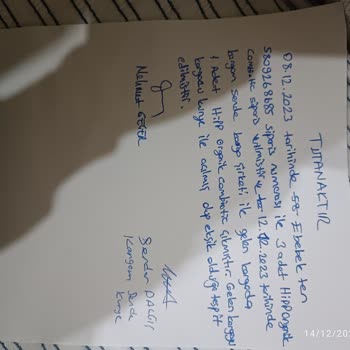 TUTANAKTIR
08.12.2023 tarihinde Ebebek ten
5809268685 sipariş numarası ile 3 adet Hipp organik
combiotic sipariş verilmiştir. 12.12.2023 tarihinde
kargom sende kargo şirketi ile gelen kargoda
1 adet Hipp organik combiotic çıkmıştır. Gelen kargo
kargocu kurye ile açılmış olup eksik olduğu tespit
edilmiştir.
Mehmut
Serdar DALGIÇ
Kargom Sende
kurye
14/12/20